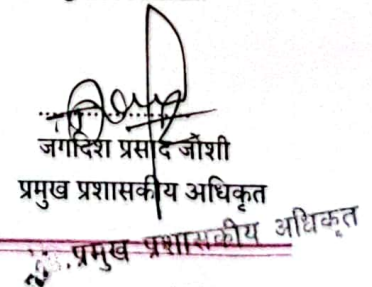 जगदिश प्रसाद जोशी
प्रमुख प्रशासकीय अधिकृत
प्रमुख प्रशासकीय अधिकृत